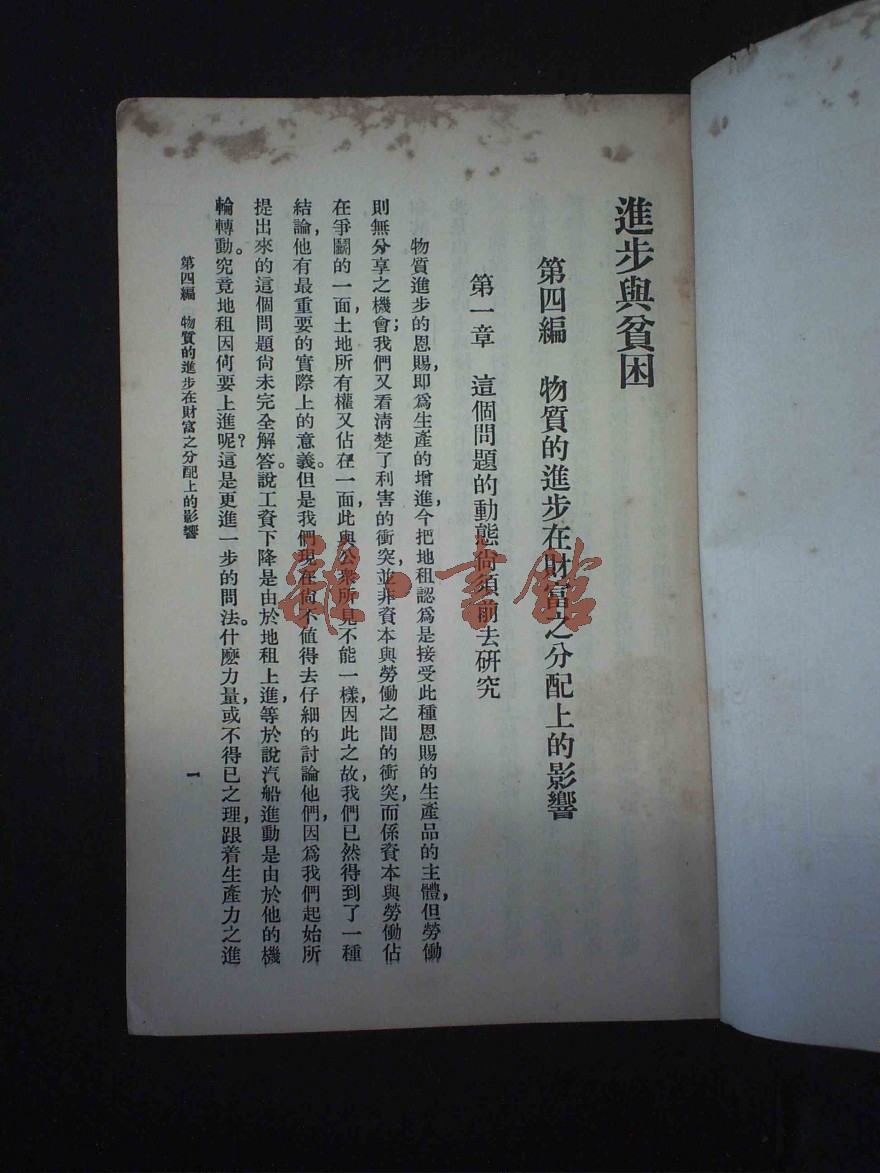 進步與貧困
第四編　物質的進步在財富之分配上的影響
第一章　這個問題的動態尚須前去研究
物質進步的恩賜，即爲生產的增進，今把地租認爲是接受此種恩賜的生產品的主體，但勞働
則無分享之機會；我們又看清楚了利害的衝突，並非資本與勞働之間的衝突，而係資本與勞働佔
在爭鬭的一面，土地所有權又佔在一面，此與公衆所見不能一樣，因此之故，我們已然得到了一種
結論，他有最重要的實際上的意義。但是我們現在尚不值得去仔細的討論他們，因爲我們起始所
提出來的這個問題尚未完全解答。說工資下降是由於地租上進，等於說汽船進動是由於他的機
輪轉動。究竟地租因何要上進呢？這是更進一步的問法。什麽力量，或不得已之理，跟着生產力之進
第四編　物質的進步在財富之分配上的影響
一
雜·書館